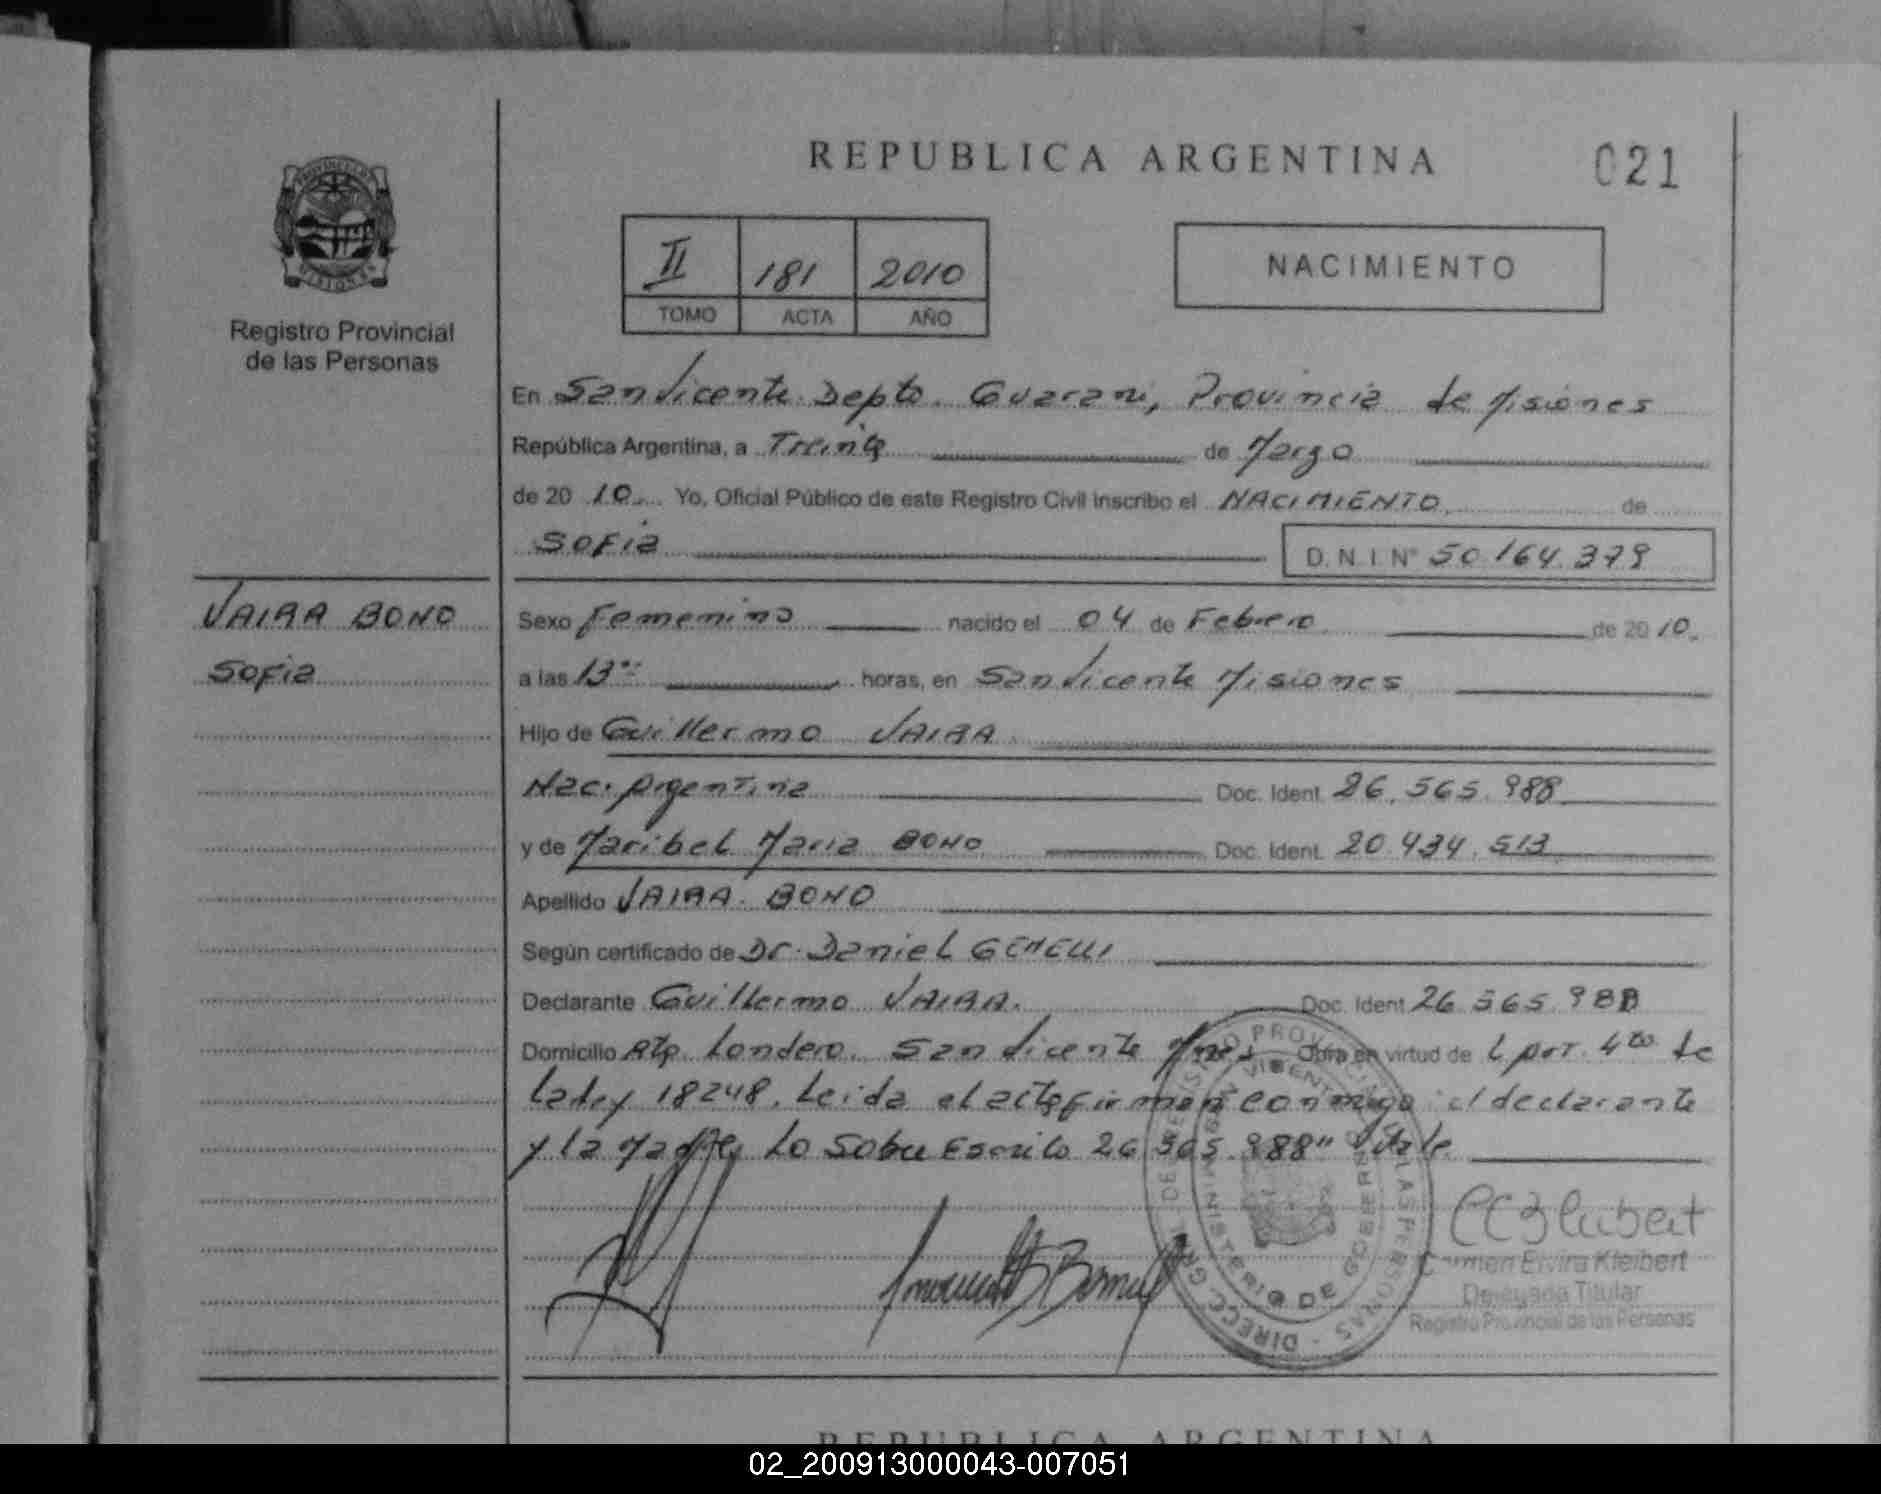 REPUBLICA ARGENTINA
021
II 181 2010
TOMO ACTA AÑO
NACIMIENTO
Registro Provincial
de las Personas
En San Vicente Depto. Guarani, Provincia de Misiones
República Argentina, a Treinta de Marzo
de 20 10 Yo, Oficial Público de este Registro Civil inscribo el NACIMIENTO de
Sofia D.N.I.Nº 50.164.379
VAIRA BONO
Sofia
Sexo Femenino nacido el 04 de Febrero de 20 10.
a las 13 horas, en San Vicente Misiones
Hijo de Guillermo VAIRA
Nac. Argentina Doc. Ident. 26.565.988
y de Maribel Maria BONO Doc. Ident. 20.434.513
Apellido VAIRA BONO
Según certificado de Dr. Daniel GEMELLI
Declarante Guillermo VAIRA. Doc. Ident. 26.565.988
Domicilio Londero. San Vicente Mnes Obra en virtud de L Art. 4to de
la Ley 18248. Leida el acta firman conmigo el declarante
y la Madre, Lo Sobre Escrito 26.565.988" Vale
DIREC. GRAL. DE REGISTRO PROVINCIAL DE LAS PERSONAS
SAN VICENTE
MINISTERIO DE GOBIERNO
Carmen Elvira Kleibert
Delegada Titular
Registro Provincial de las Personas
REPUBLICA ARGENTINA
02_200913000043-007051